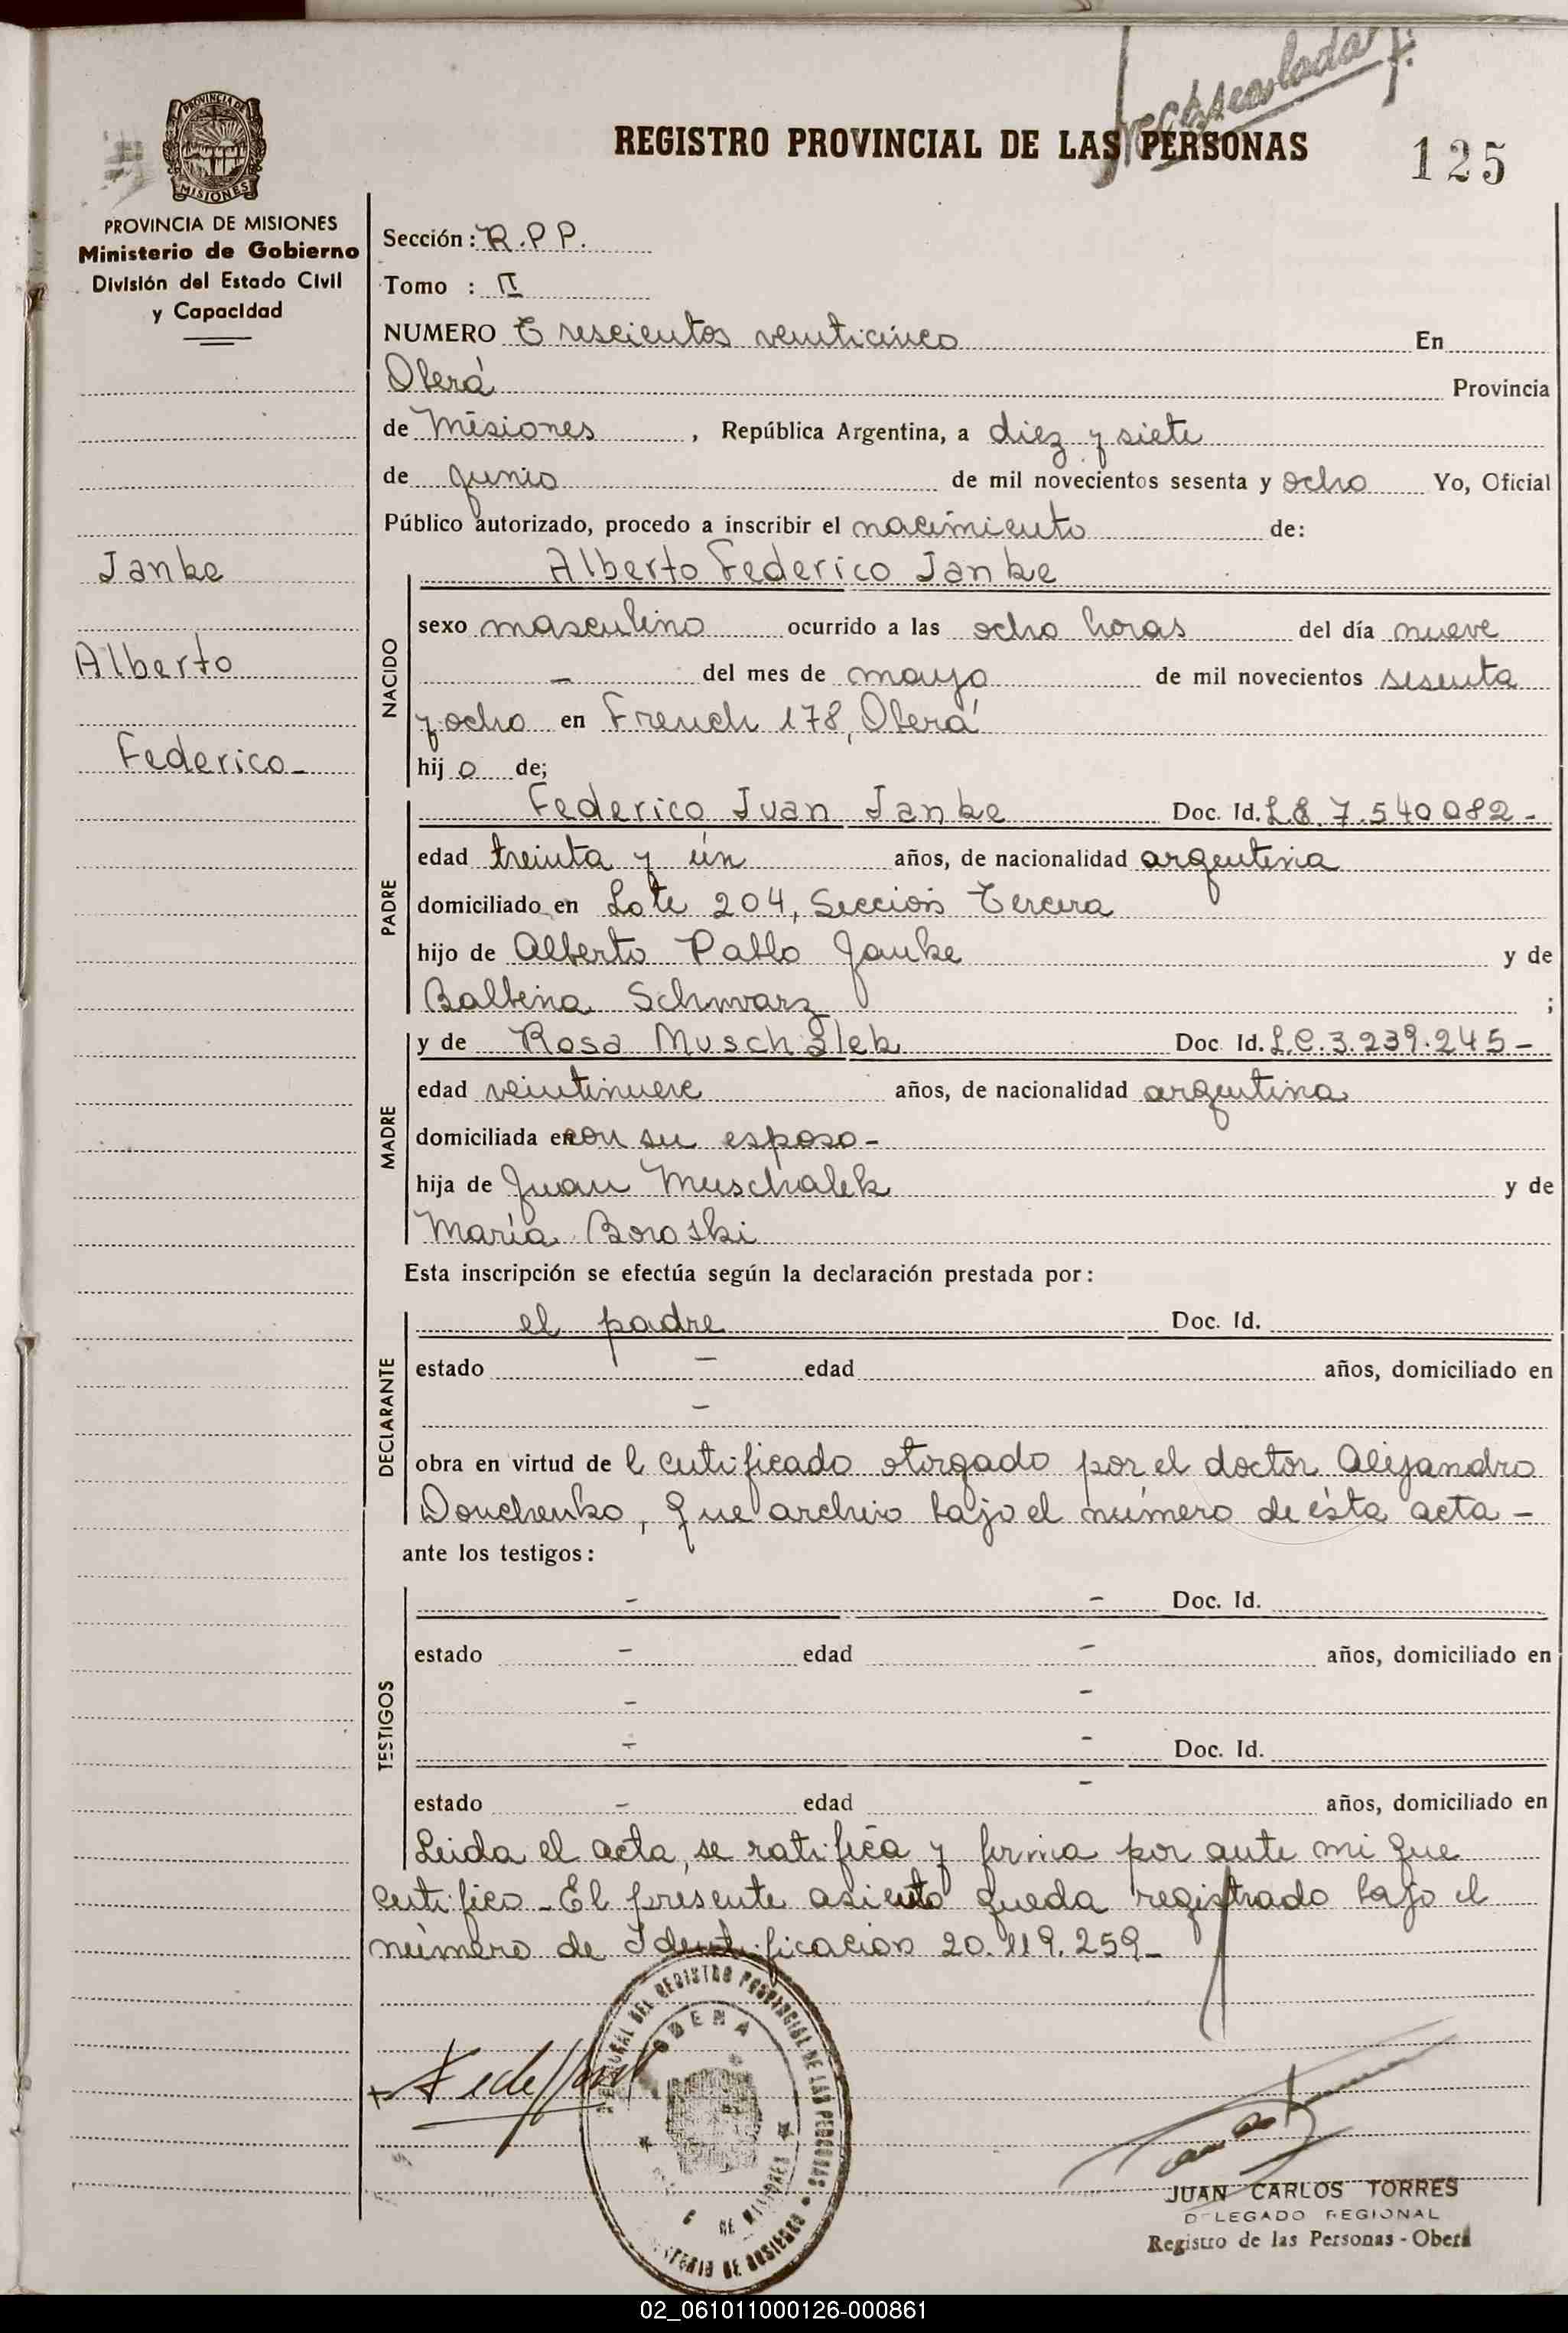 REGISTRO PROVINCIAL DE LAS PERSONAS
125
PROVINCIA DE
MISIONES
PROVINCIA DE MISIONES
Ministerio de Gobierno
División del Estado Civil
y Capacidad
Janke
Alberto
Federico-
Sección: R.P P.
Tomo : II
NUMERO Trescientos veinticinco En
Oberá Provincia
de Misiones, República Argentina, a diez y siete
de junio de mil novecientos sesenta y ocho Yo, Oficial
Público autorizado, procedo a inscribir el nacimiento de:
NACIDO
Alberto Federico Janke
sexo masculino ocurrido a las ocho horas del día nueve
- del mes de mayo de mil novecientos sesenta
y ocho en French 178, Oberá
hijo de;
PADRE
Federico Juan Janke Doc. Id. L.E. 7.540.082-
edad treinta y ún años, de nacionalidad argentina
domiciliado en Lote 204, Sección Tercera
hijo de Alberto Pablo Janke y de
Balbina Schwarz ;
MADRE
y de Rosa Muschalek Doc. Id. L.C. 3.239.245-
edad veintinueve años, de nacionalidad argentina
domiciliada en con su esposo-
hija de Juan Muschalek y de
María Boroski
Esta inscripción se efectúa según la declaración prestada por:
DECLARANTE
el padre Doc. Id.
estado - edad años, domiciliado en
-
obra en virtud del certificado otorgado por el doctor Alejandro
Donchenko, que archivo bajo el número de ésta acta-
ante los testigos:
TESTIGOS
- - Doc. Id.
estado - edad - años, domiciliado en
- -
- - Doc. Id.
-
estado - edad años, domiciliado en
Leida el acta, se ratifica y firma por ante mi que
certifico-El presente asiento queda registrado bajo el
número de Identificación 20.119.259-
DEL REGISTRO PROVINCIAL DE LAS PERSONAS
JUAN CARLOS TORRES
DELEGADO REGIONAL
Registro de las Personas - Oberá
02_061011000126-000861